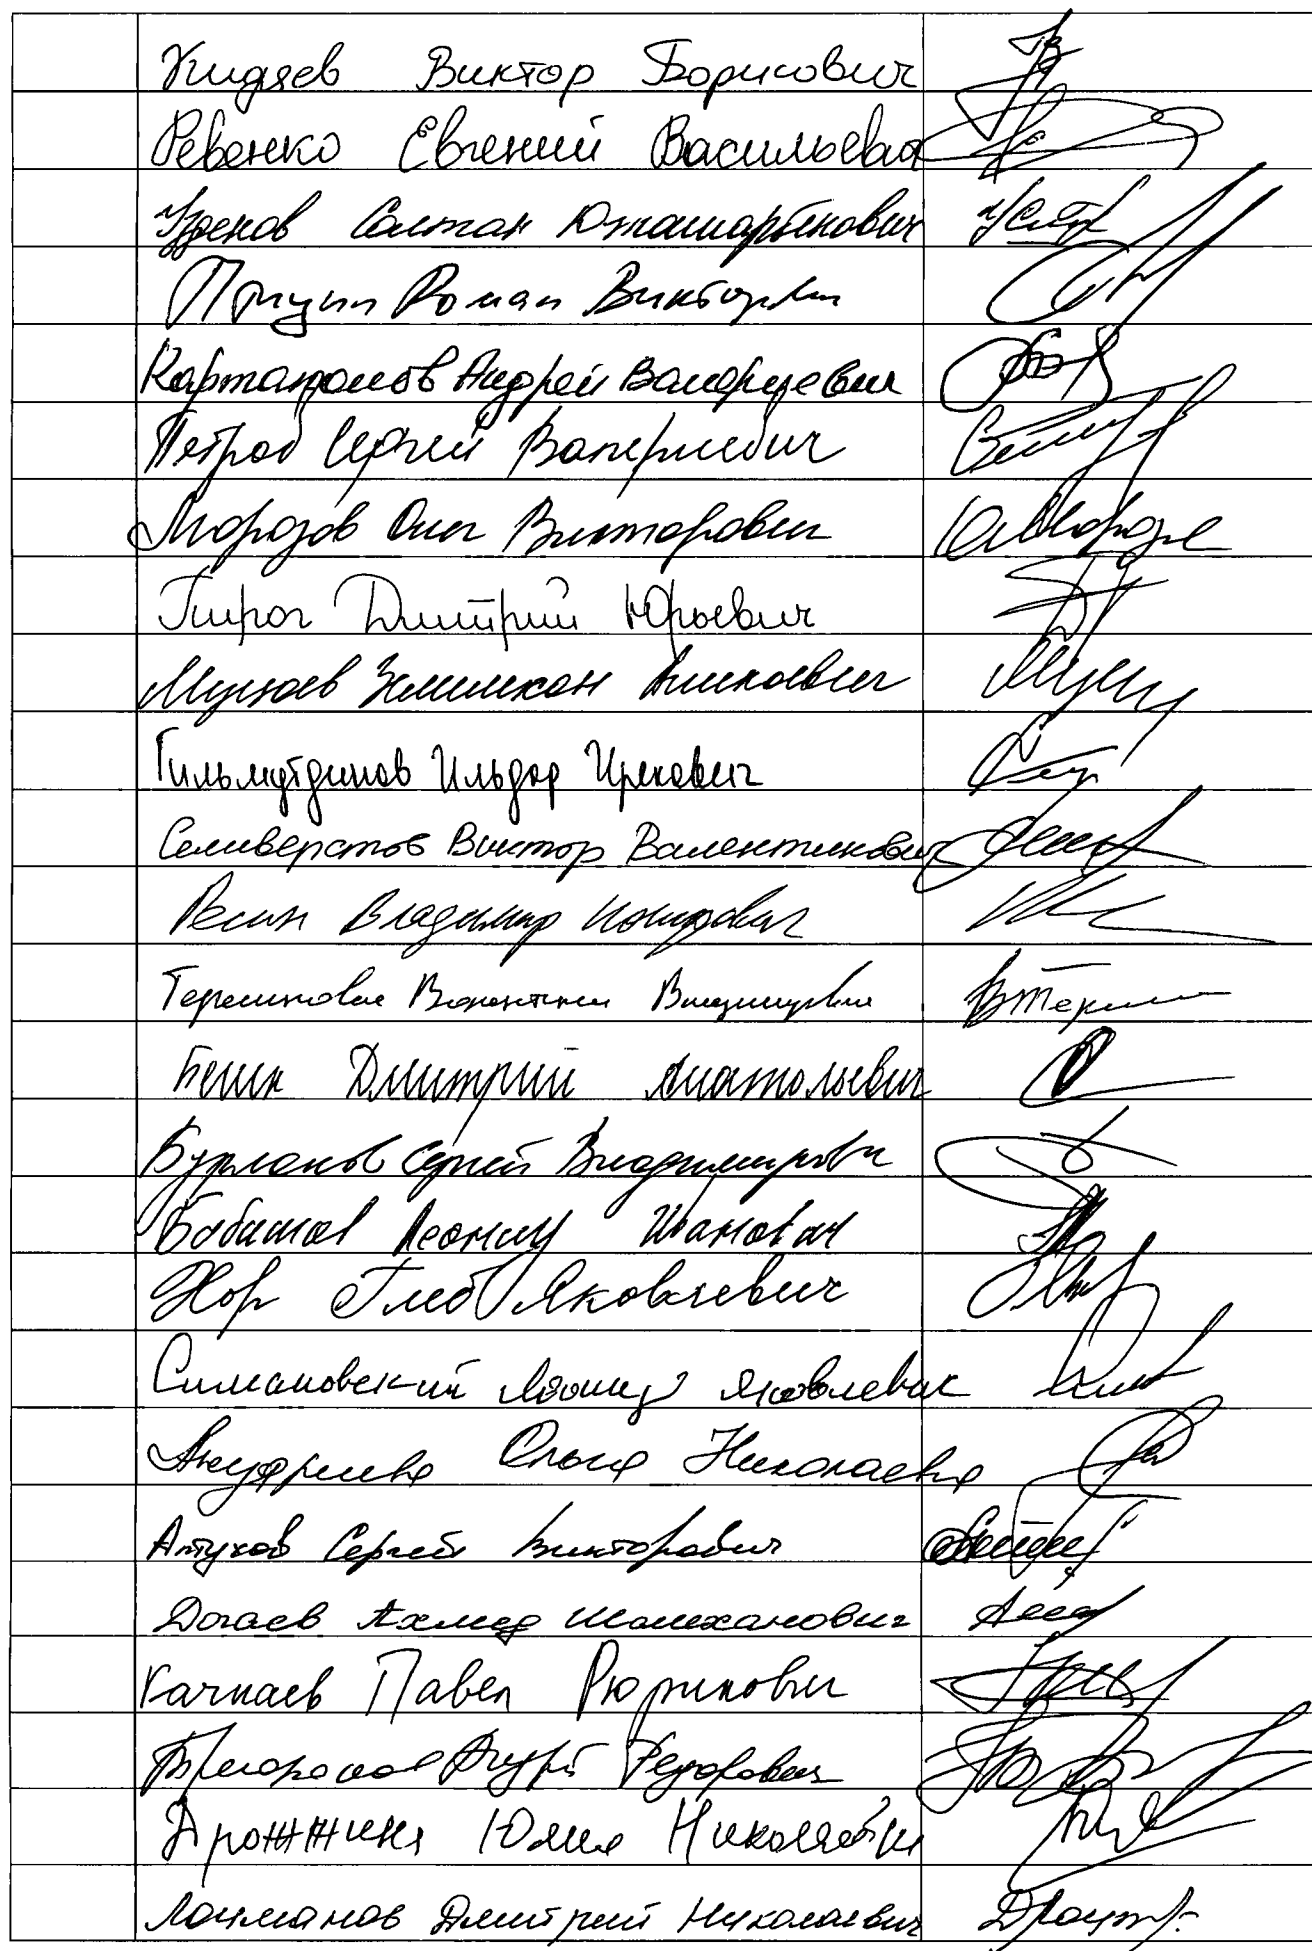 Кидяев Виктор Борисович
Ревенко Евгений Васильевич
Узденов Солтан
Роман Викторович
Картаполов Андрей Валериевич
Петров Сергей Валериевич
Морозов Олег Викторович
Пирог Дмитрий Юрьевич
Муцоев Зелимхан Аликоевич
Гильмутдинов Ильдар Ирекович
Селиверстов Виктор Валентинович
Ресин Владимир Иосифович
Терешкова Валентина Владимировна
Бе Дмитрий Анатольевич
Бурлаков Сергей Владимирович
Бабашов Леонид Иванович
Хор Глеб Яковлевич
Симановский Леонид Яковлевич
Ануфриева Ольга Николаевна
Алтухов Сергей Викторович
Догаев Ахмед Шамханович
Качкаев Павел Рюрикович
Андрей Федорович
Дрожжина Юлия Николаевна
Лоцманов Дмитрий Николаевич